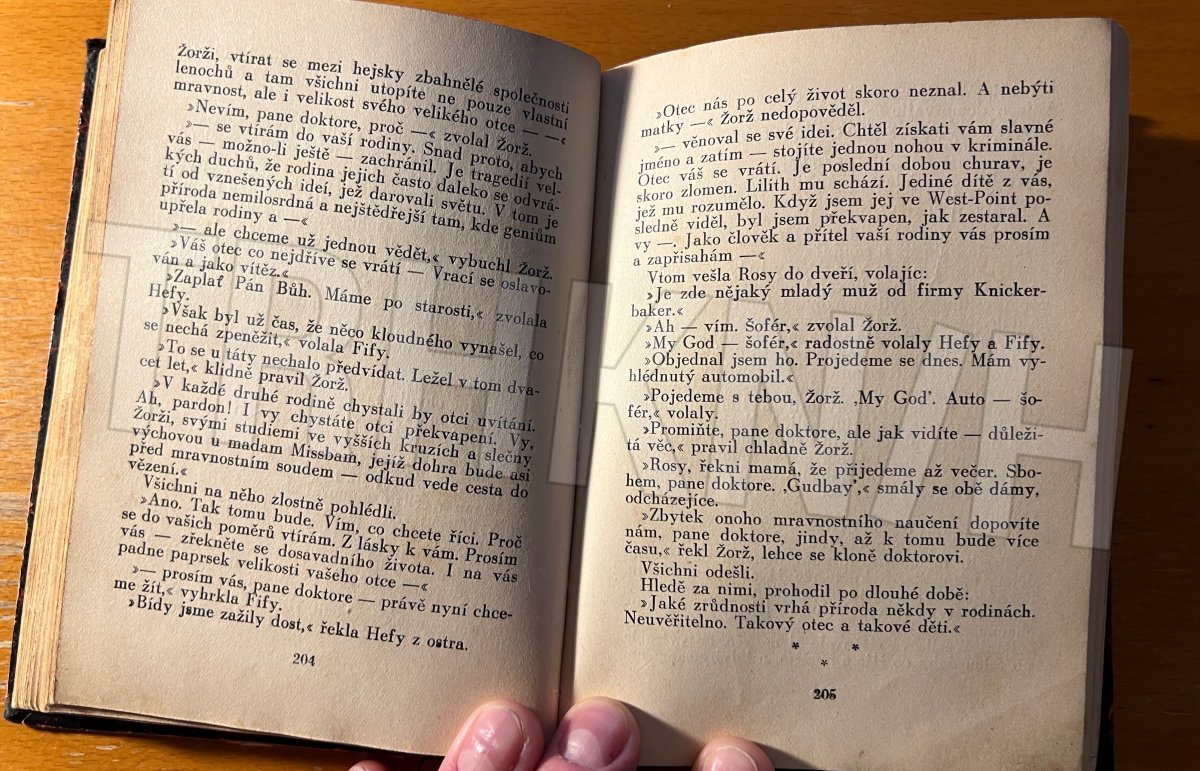 Žorži, vtírat se mezi hejsky zbahnělé společnosti
lenochů a tam všichni utopíte ne pouze vlastní
mravnost, ale i velikost svého velikého otce — —«
»Nevím, pane doktore, proč —« zvolal Žorž.
»— se vtírám do vaší rodiny. Snad proto, abych
vás — možno-li ještě — zachránil. Je tragedií vel-
kých duchů, že rodina jejich často daleko se odvrá-
tí od vznešených ideí, jež darovali světu. V tom je
příroda nemilosrdná a nejštědřejší tam, kde geniům
upřela rodiny a —«
»— ale chceme už jednou vědět,« vybuchl Žorž.
»Váš otec co nejdříve se vrátí — Vrací se oslavo-
ván a jako vítěz.«
»Zaplať Pán Bůh. Máme po starosti,« zvolala
Hefy.
»Však byl už čas, že něco kloudného vynašel, co
se nechá zpeněžit,« volala Fify.
»To se u táty nechalo předvídat. Ležel v tom dva-
cet let,« klidně pravil Žorž.
»V každé druhé rodině chystali by otci uvítání.
Ah, pardon! I vy chystáte otci překvapení. Vy,
Žorži, svými studiemi ve vyšších kruzích a slečny
výchovou u madam Missbam, jejíž dohra bude asi
před mravnostním soudem — odkud vede cesta do
vězení.«
Všichni na něho zlostně pohlédli.
»Ano. Tak tomu bude. Vím, co chcete říci. Proč
se do vašich poměrů vtírám. Z lásky k vám. Prosím
vás — zřekněte se dosavadního života. I na vás
padne paprsek velikosti vašeho otce —«
»— prosím vás, pane doktore — právě nyní chce-
me žít,« vyhrkla Fify.
»Bídy jsme zažily dost,« řekla Hefy z ostra.
204
»Otec nás po celý život skoro neznal. A nebýti
matky —« Žorž nedopověděl.
»— věnoval se své idei. Chtěl získati vám slavné
jméno a zatím — stojíte jednou nohou v kriminále.
Otec váš se vrátí. Je poslední dobou churav, je
skoro zlomen. Lilith mu schází. Jediné dítě z vás,
jež mu rozumělo. Když jsem jej ve West-Point po-
sledně viděl, byl jsem překvapen, jak zestaral. A
vy —. Jako člověk a přítel vaší rodiny vás prosím
a zapřisahám —«
Vtom vešla Rosy do dveří, volajíc:
»Je zde nějaký mladý muž od firmy Knicker-
baker.«
»Ah — vím. Šofér,« zvolal Žorž.
»My God — šofér,« radostně volaly Hefy a Fify.
»Objednal jsem ho. Projedeme se dnes. Mám vy-
hlédnutý automobil.«
»Pojedeme s tebou, Žorž. ‚My God'. Auto — šo-
fér,« volaly.
»Promiňte, pane doktore, ale jak vidíte — důleži-
tá věc,« pravil chladně Žorž.
»Rosy, řekni mamá, že přijedeme až večer. Sbo-
hem, pane doktore. ‚Gudbay',« smály se obě dámy,
odcházejíce.
»Zbytek onoho mravnostního naučení dopovíte
nám, pane doktore, jindy, až k tomu bude více
času,« řekl Žorž, lehce se kloně doktorovi.
Všichni odešli.
Hledě za nimi, prohodil po dlouhé době:
»Jaké zrůdnosti vrhá příroda někdy v rodinách.
Neuvěřitelno. Takový otec a takové děti.«
* *
*
205
TRHKNIH